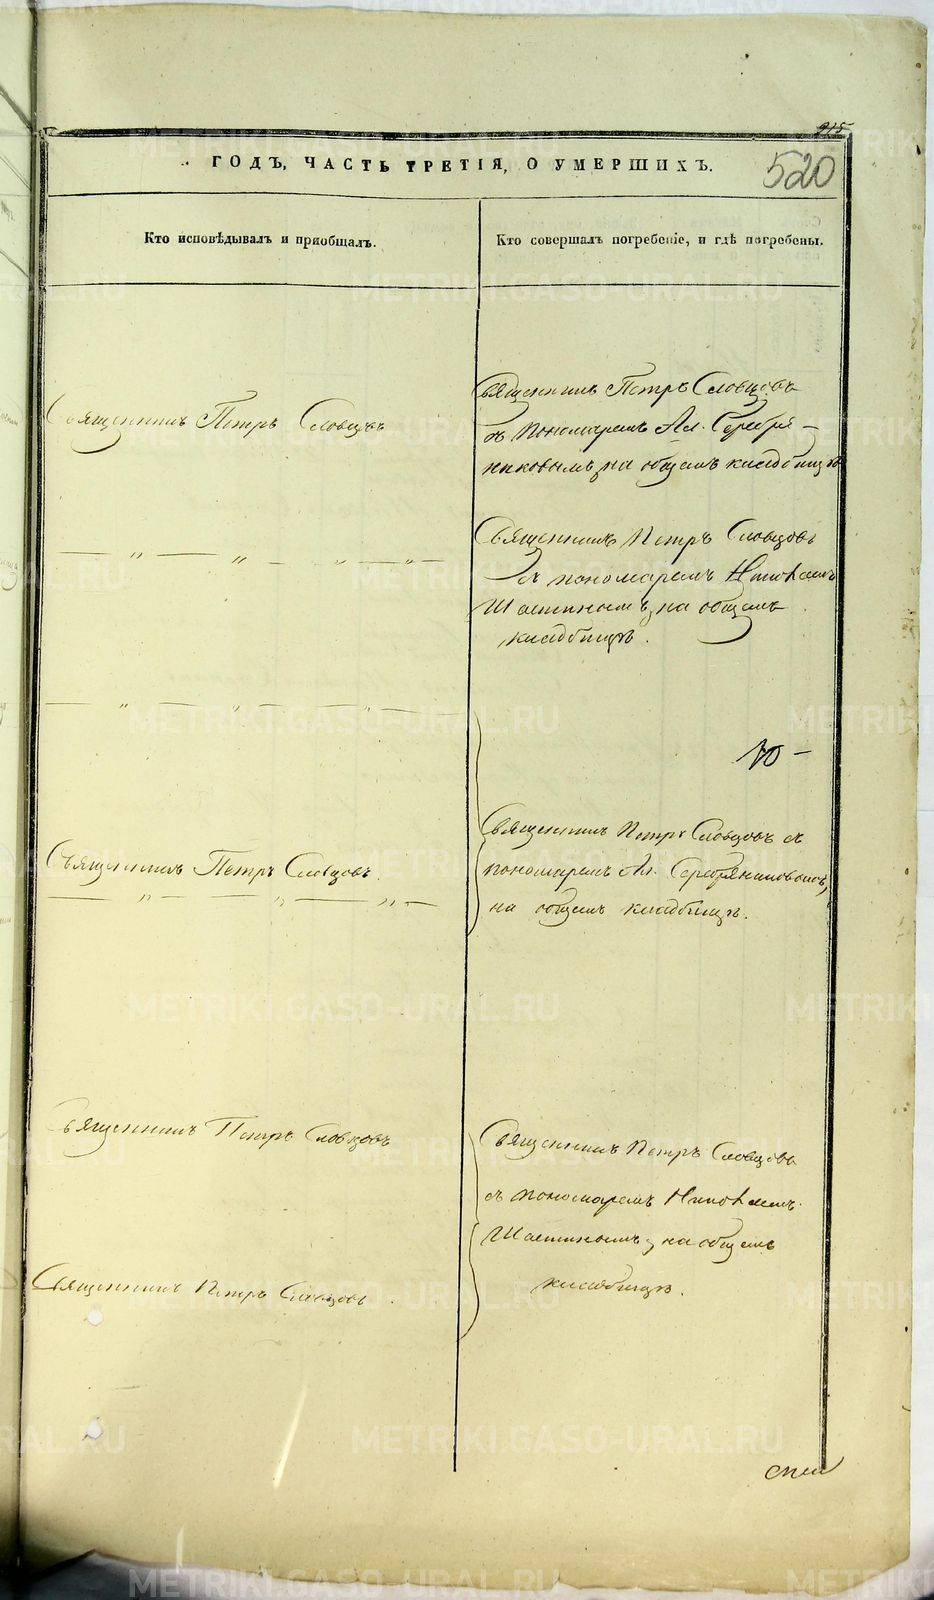 915
ГОДЪ, ЧАСТЬ ТРЕТІЯ, О УМЕРШИХЪ.
520
Кто исповѣдывалъ и пріобщалъ.
Кто совершалъ погребеніе, и гдѣ погребены.
Священникъ Петръ Словцовъ
Священникъ Петръ Словцовъ
съ пономаремъ Ал. Серебря-
никовымъ, на общемъ кладбищѣ
— „ — „ — „ — „ —
Священникъ Петръ Словцовъ
съ пономаремъ Николаемъ
Шастинымъ, на общемъ
кладбищѣ.
— „ — „ — „ —
Священникъ Петръ Словцовъ.
— „ — „ — „ —
Священникъ Петръ Словцовъ съ
пономаремъ Ал. Серебряниковымъ,
на общемъ кладбищѣ.
Священникъ Петръ Словцовъ
Священникъ Петръ Словцовъ.
Священникъ Петръ Словцовъ
съ пономаремъ Николаемъ
Шастинымъ, на общемъ
кладбищѣ.
METRIKI.GASO-URAL.RU